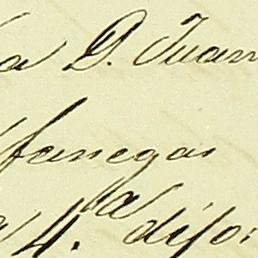 a D. Juan
fanegas
4.ª dijo: